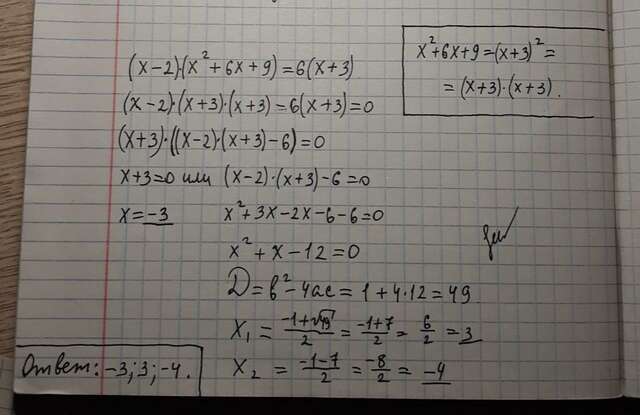 (x-2)·(x²+6x+9)=6(x+3)
(x-2)·(x+3)·(x+3)=6(x+3)=0
(x+3)·((x-2)·(x+3)-6)=0
x+3=0 или (x-2)·(x+3)-6=0
x=-3 x²+3x-2x-6-6=0
x²+x-12=0
D=b²-4ac=1+4·12=49
x₁=(-1+√49)/2=(-1+7)/2=6/2=3
x₂=(-1-7)/2=-8/2=-4
x²+6x+9=(x+3)²=
=(x+3)·(x+3).
Ответ: -3; 3; -4.